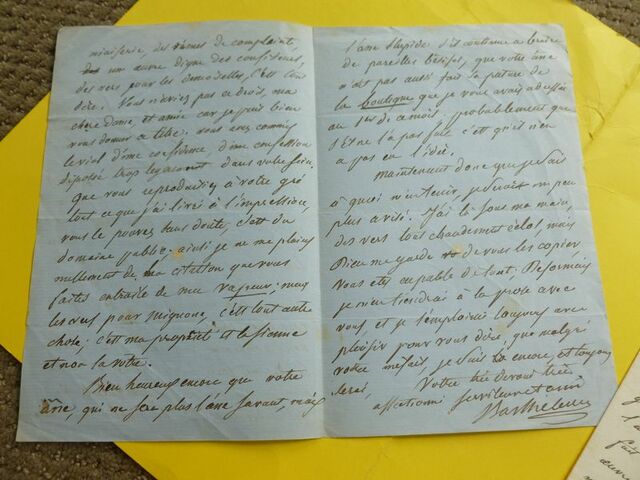 miaiserie, des rimes de complainte
un autre digne des confiseurs,
des vers pour les demoiselles, c'est tout
dire. Vous n'aviez pas ce droit, ma
chere dame et amie car je peux bien
vous donner ce titre. vous avez commis
le viol d'une confidence d'une confession
déposée trop legerement dans votre sein.
que vous reproduisiez à votre gré
tout ce que j'ai livré à l'impression,
vous le pouvez sans doute, c'est du
domaine public. ainsi je ne me plains
nullement de la citation que vous
faites entraile de ma vapeur; mais
les vers pour mignone, c'est tout autre
chose; c'est ma propriété et la sienne
et non la votre.
Bien heureux encore que votre
âne, qui ne sera plus l'âne savant, mais
l'âne stupide s'il continue à braire
de pareilles bêtises, que votre âne
n'ait pas aussi fait sa pature de
la Boutique que je vous avais adressée
au 1er de ce mois, probablement que
s'il ne l'a pas fait c'est qu'il n'en
a pas eu l'idée.
maintenant donc que je sais
à quoi m'en tenir, je serai un peu
plus avisé. J'ai là sous ma main,
des vers tout chaudement éclos, mais
Dieu me garde de vous les copier,
Vous etes capable de tout; Désormais
je m'en tiendrai à la prose avec
vous et je l'emploierai toujours avec
plaisir pour vous dire, que malgré
votre méfait, je suis encore, et toujours
serai,
Votre très devoué très
affectionné serviteur et ami
Barthélemy
fait